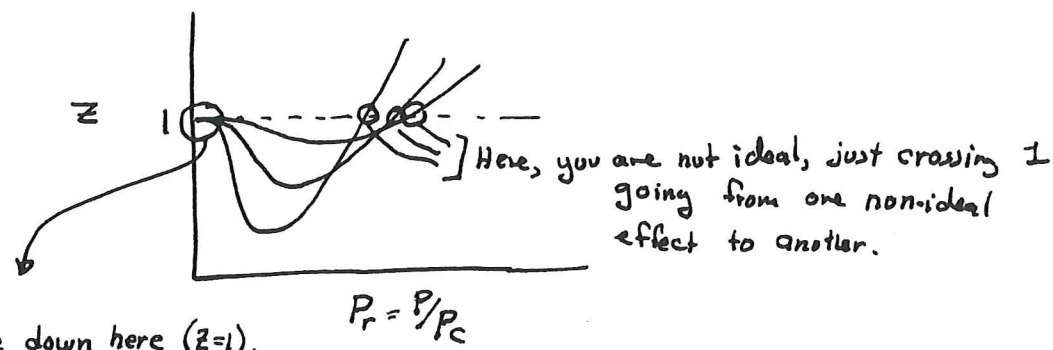 Z
1
] Here, you are not ideal, just crossing 1
going from one non-ideal
effect to another.
Pr = P/Pc
down here (Z=1).